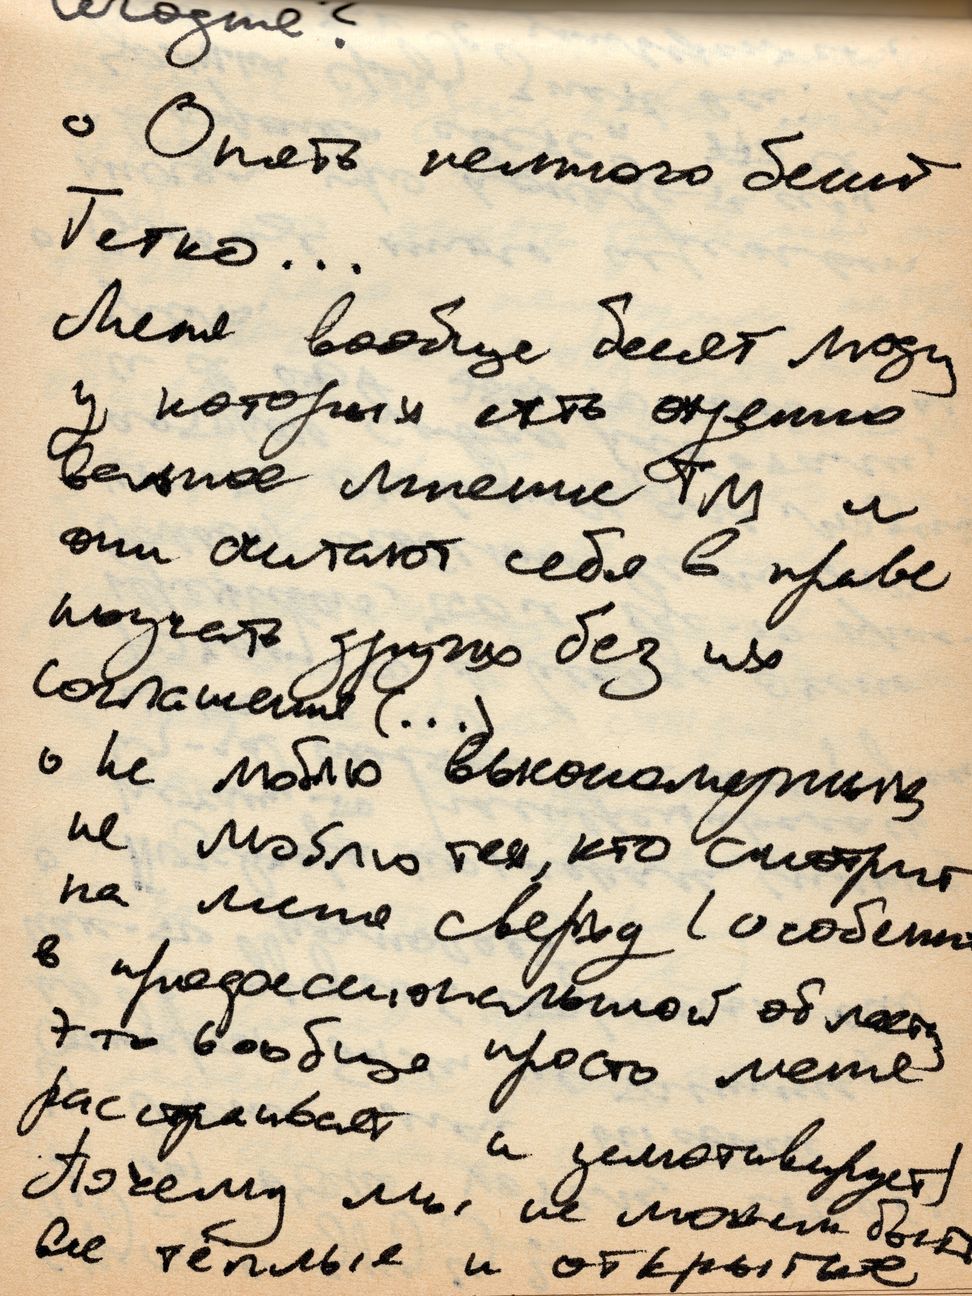 о Опять немного бесит
Гетко...
Меня вообще бесят люди
у которых есть охуенно
важное мнение ТМ и
они считают себя в праве
поучать других без их
соглашения (...)
о Не люблю высокомерных
не люблю тех, кто смотрит
на меня сверху (особенно
в профессиональной области
Это вообще просто меня
расстраивает и демотивирует)
Почему мы не можем быть
все тёплые и открытые